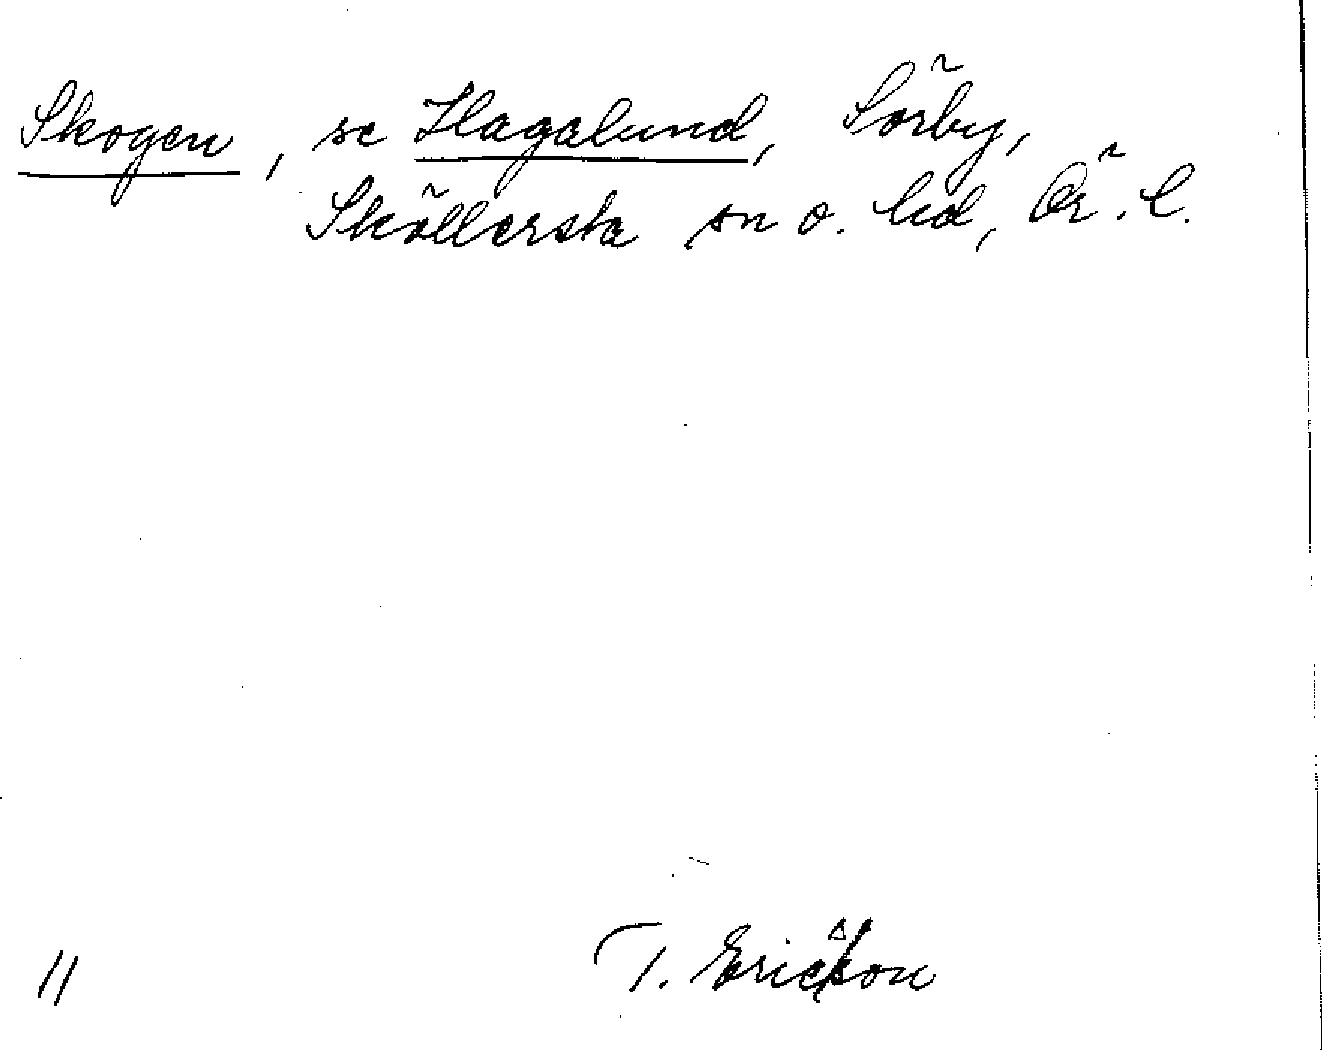 Skogen, se Hagalund, Sörby,
Sköllersta sn o. hd, Ör. l.
11 T. Ericsson